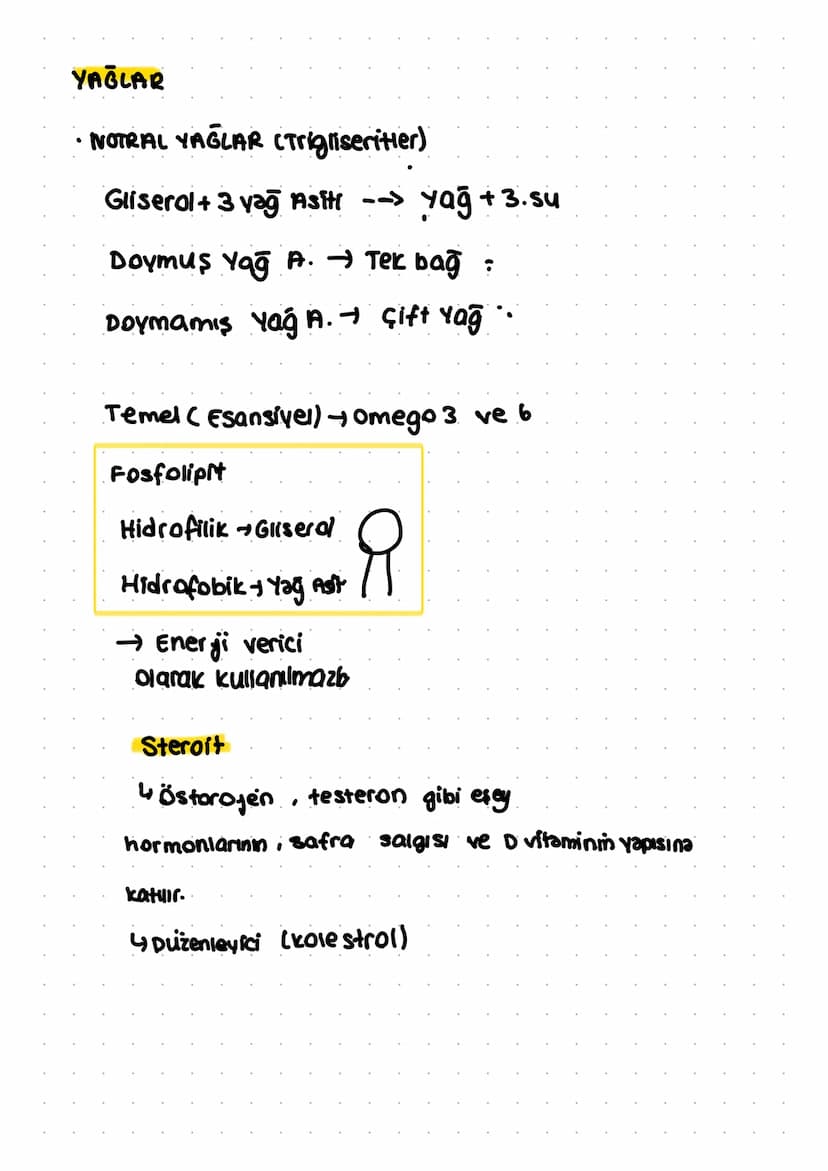 YAĞLAR
· NOTRAL YAĞLAR (Trigliseritler)
Gliserol + 3 yağ Asiti --> yağ + 3.su
Doymuş Yağ A. → Tek bağ :
Doymamış Yağ A. → Çift Yağ ∵
Temel (Esansiyel) → Omego 3 ve 6
Fosfolipit
Hidrofilik → Gliserol
Hidrofobik → Yağ Asit
→ Enerji verici
olarak kullanılmaz
Steroit
↳ Östorojen , testeron gibi eşey
hormonlarının , safra salgısı ve D vitaminin yapısına
katılır.
↳ Düzenleyici (kolestrol)